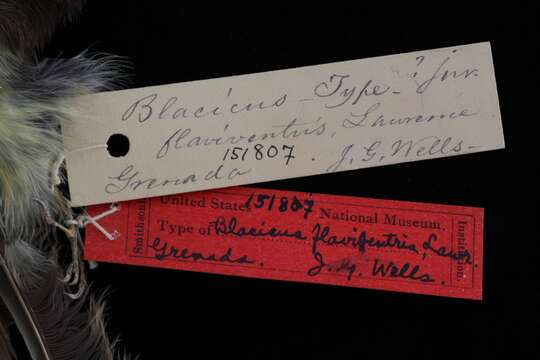 Blacicus - Type - ? juv.
flaviventris, Lawrence
151807 . J. G. Wells -
Grenada
United States 151807 National Museum,
Smithsonian
Type of Blacicus flaviventris, Lawr.
Institution.
Grenada. J. G. Wells.